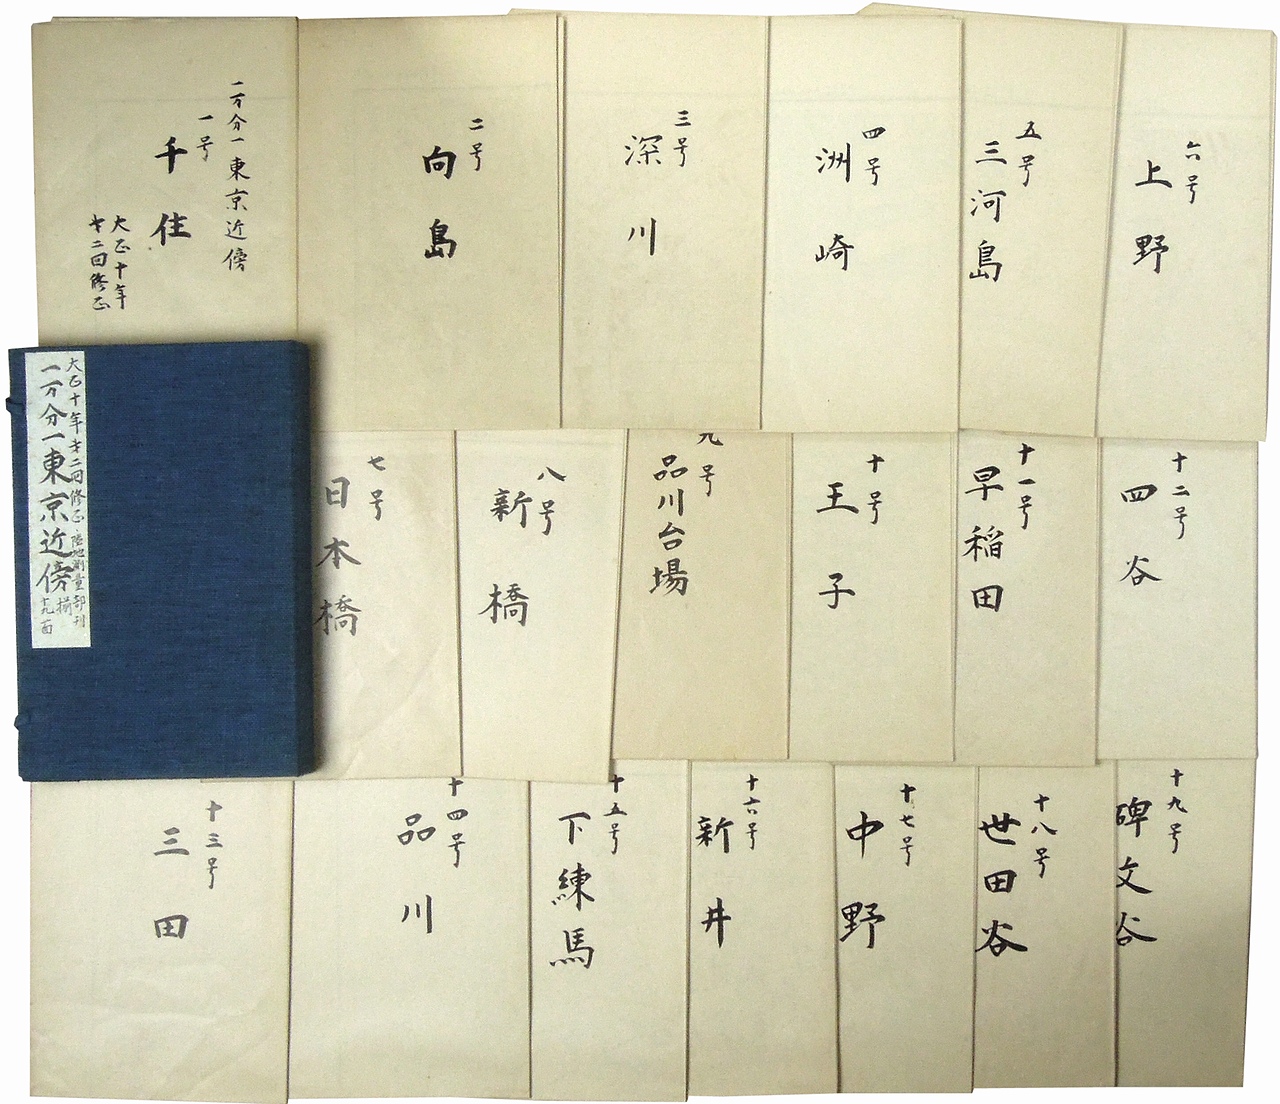 一万分一東京近傍
一号
千住
大正十年
才二回修正
二号
向島
三号
深川
四号
洲崎
五号
三河島
六号
上野
大正十年才二回修正陸地測量部刊
一万分一東京近傍
揃
十九面
七号
日本橋
八号
新橋
九号
品川台場
十号
王子
十一号
早稲田
十二号
四谷
十三号
三田
十四号
品川
十五号
下練馬
十六号
新井
十七号
中野
十八号
世田谷
十九号
碑文谷